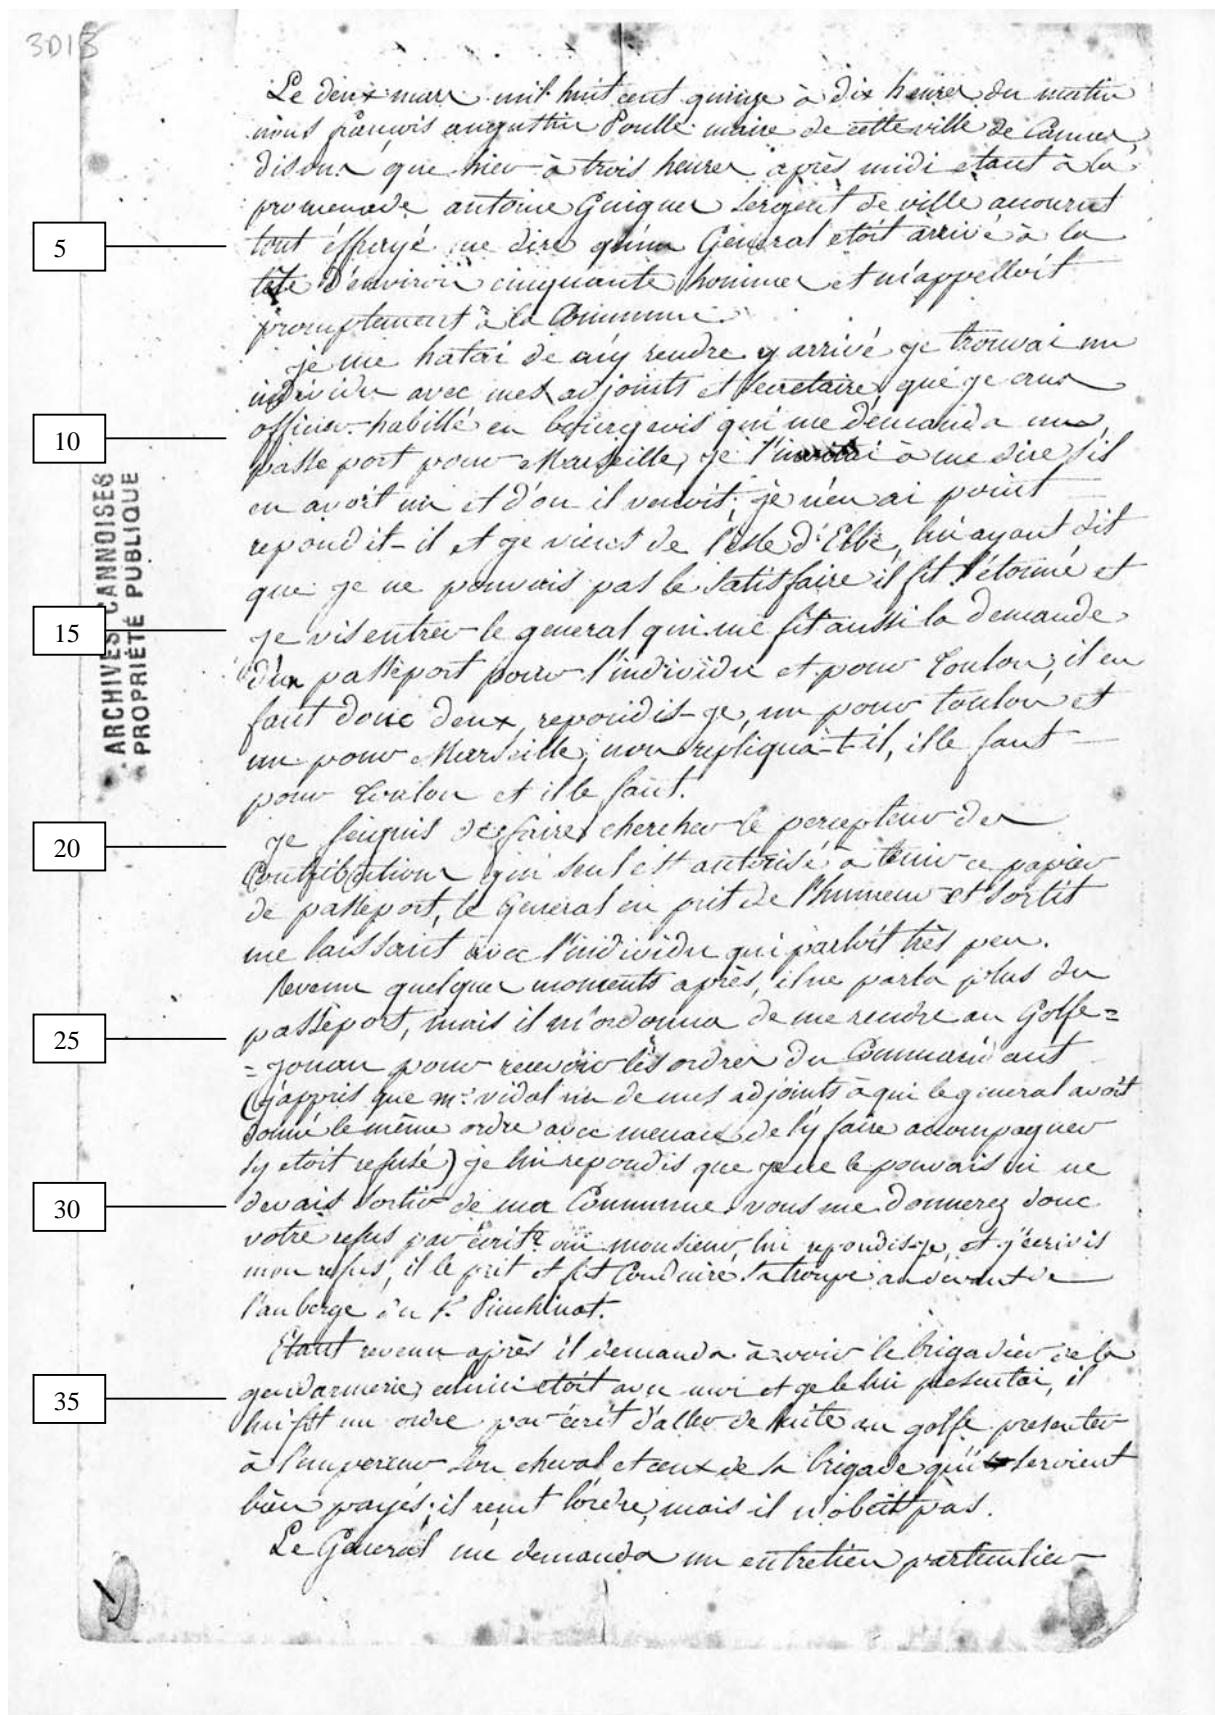 3D13
Le deux mars mil huit cent quinze à dix heures du matin
nous françois augustin Poulle maire de cette ville de Cannes,
disons que hier à trois heures après midi etant à la
promenade antoine Guigues Sergent de ville accourut
5
tout éffrayé me dire qu'un Général etoit arrivé à la
tête d'environ cinquante hommes et m'appelloit
promptement à la Commune.
je me hatai de m'y rendre y arrivé je trouvai un
individu avec mes adjoints et secretaire, que je crus
10
officier habillé en bourgeois qui me demanda un
passe port pour Marseille, je l'invitai à me dire s'il
en avoit un et d'où il venoit; je n'en ai point
repondit-il et je viens de l'isle d'Elbe, lui ayant dit
que je ne pouvais pas le satisfaire il fit l'étonné et
15
je vis entrer le general qui me fit aussi la demande
d'un passeport pour l'individu et pour Toulon; il en
faut donc deux, repondis-je, un pour toulon et
un pour Marseille; non repliqua-t-il, il le faut
pour Toulon et il le faut.
20
je feignis de faire chercher le percepteur des
Contributions qui seul est autorisé à tenir ce papier
de passeport, le Général en prit de l'humeur et sortit
me laissant avec l'individu qui parloit très peu.
Revenu quelques moments après, il ne parla plus du
25
passeport, mais il m'ordonna de me rendre au Golfe=
=Jouan pour recevoir les ordres du Commandant
(j'appris que mr. vidal un de mes adjoints à qui le general avoit
donné le même ordre avec menace de l'y faire acompagner
s'y etoit refusé) je lui repondis que je ne le pouvais ni ne
30
devais sortir de ma Commune. vous me donnerez donc
votre refus par écrit? oui monsieur, lui repondis-je, et j'écrivis
mon refus, il le prit et fit conduire sa troupe au devant de
l'auberge du Sr. Pinchinat.
Etant revenu après il demanda à voir le brigadier de la
35
gendarmerie, celui ci etoit avec moi et je le lui presentai, il
lui fit un ordre par écrit d'aller de suite au golfe presenter
à l'empereur son cheval et ceux de sa brigade qui seroient
bien payés; il reçut l'ordre, mais il n'obeit pas.
Le Général me demanda un entretien particulier
ARCHIVES CANNOISES
PROPRIÉTÉ PUBLIQUE